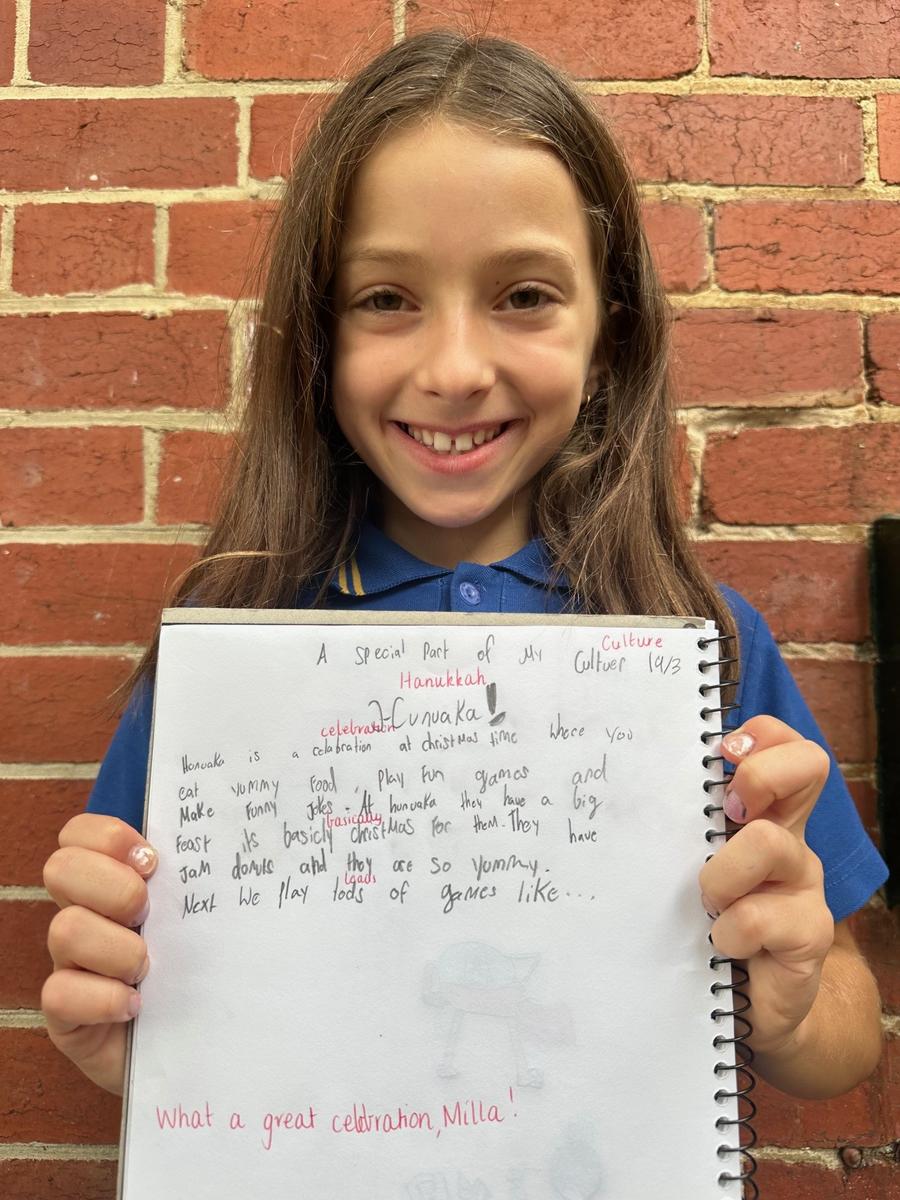 A special Part of My Cultuer 19/3
Culture
Hanukkah
Hunuaka!
celebration
Honuaka is a celabration at christMas time Where you
eat yummy Food, Play Fun games and
Make Funny Jokes. At hunuaka they have a big
basically
Feast its basicly christMas For them. They have
Jam donuts and they are so yummy.
loads
Next We Play lods of games like...
What a great celebration, Milla!